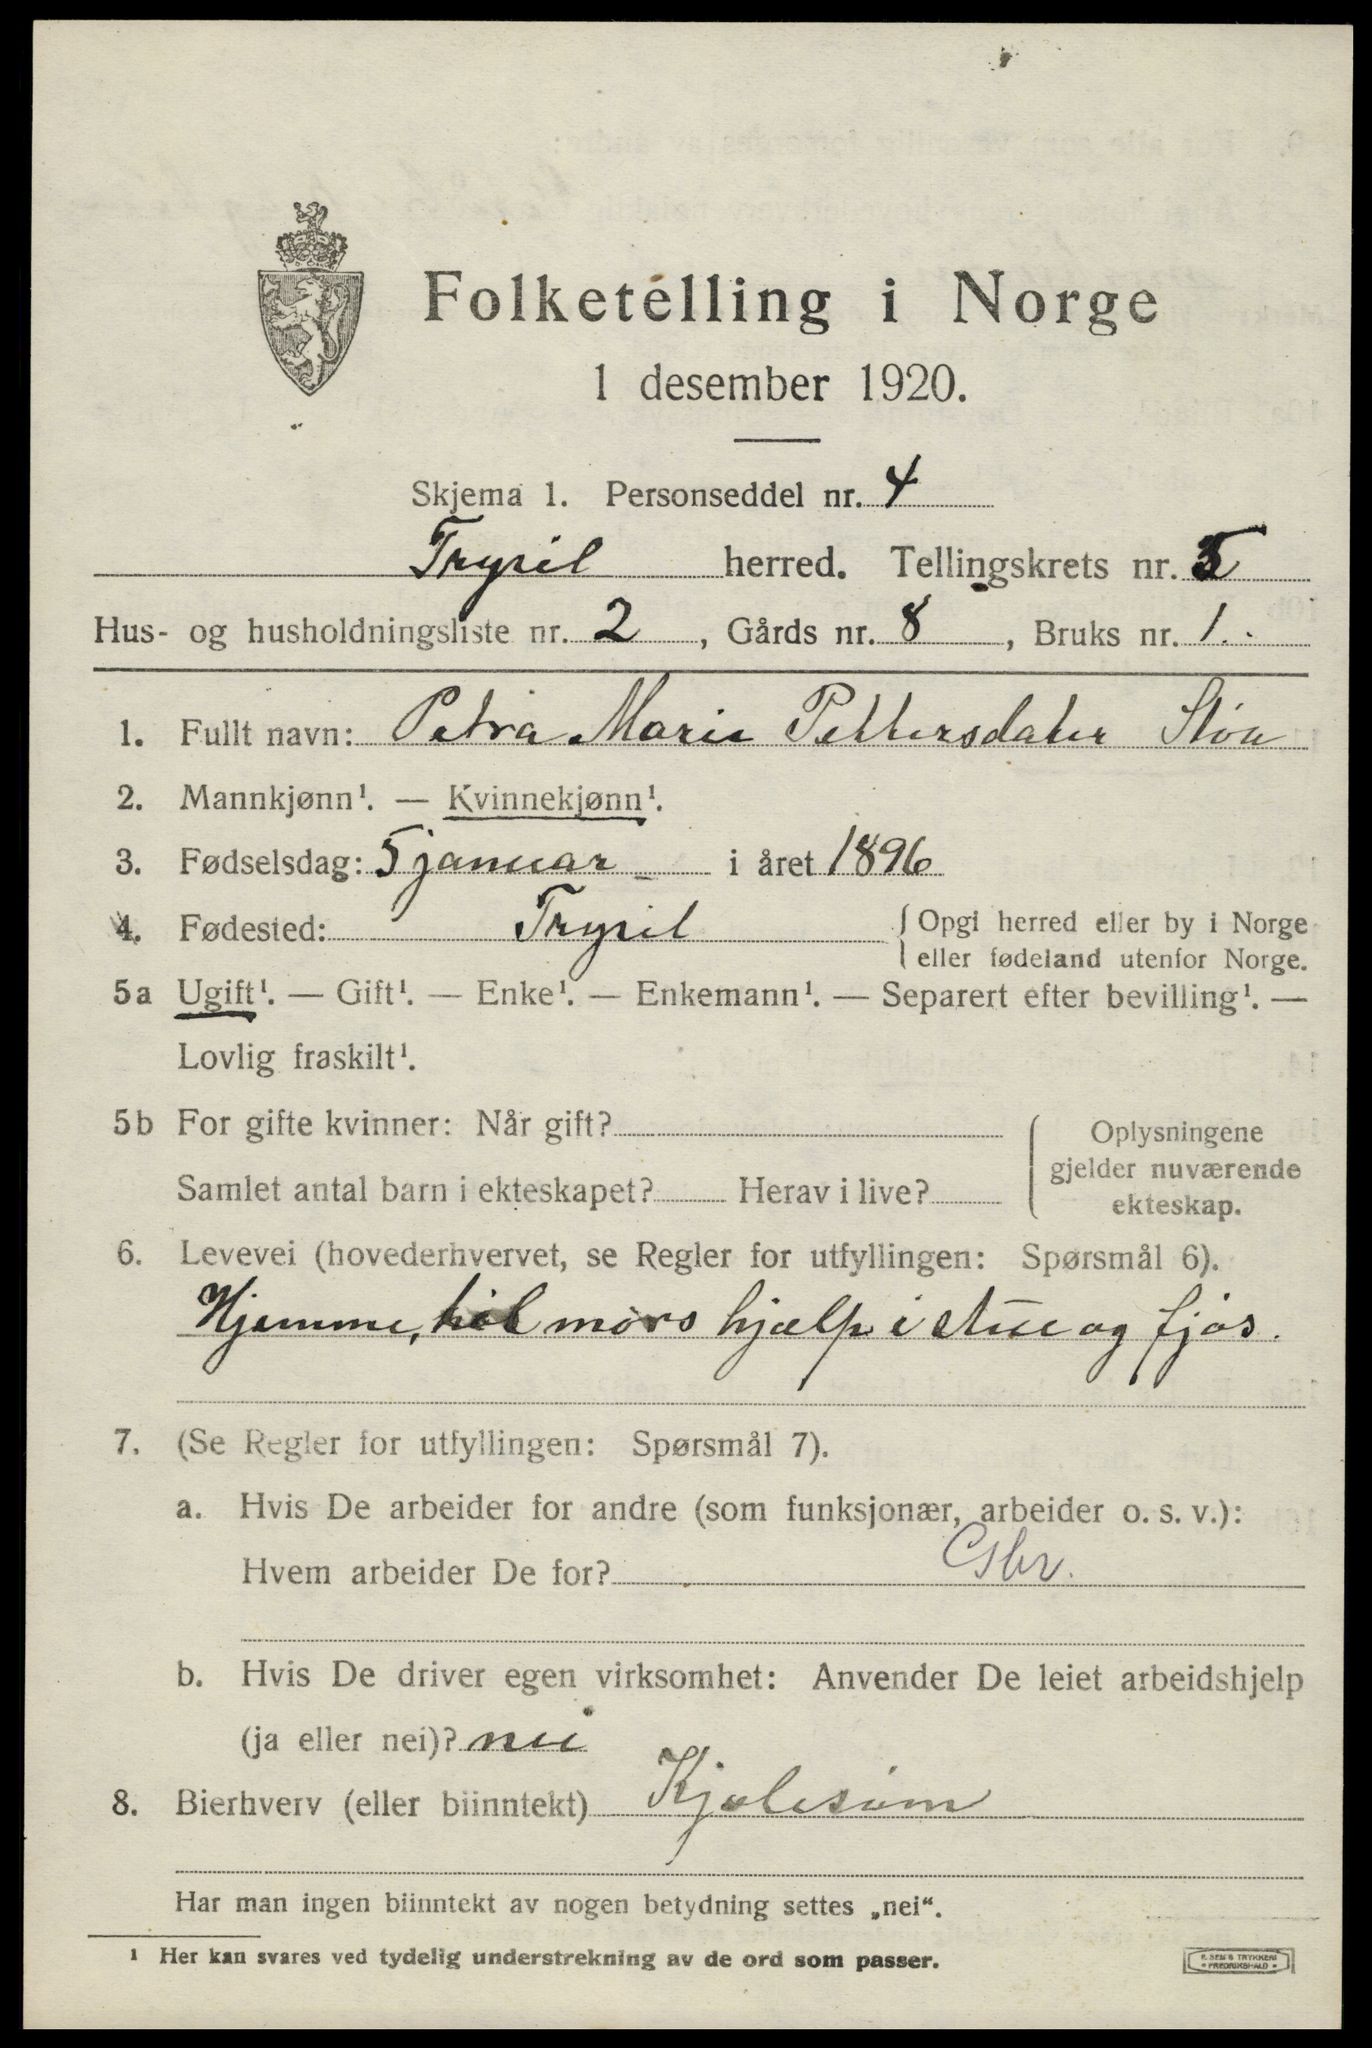 Folketelling i Norge
1 desember 1920.
Skjema 1. Personseddel nr. 4
Trysil herred. Tellingskrets nr. 5
Hus- og husholdningsliste nr. 2, Gårds nr. 8, Bruks nr. 1.
1. Fullt navn: Petra Marie Pettersdater Støa
2. Mannkjønn¹. — Kvinnekjønn¹.
3. Fødselsdag: 5 januar i året 1896
4. Fødested: Trysil { Opgi herred eller by i Norge
eller fødeland utenfor Norge.
5a Ugift¹. — Gift¹. — Enke¹. — Enkemann¹. — Separert efter bevilling¹. —
Lovlig fraskilt¹.
5b For gifte kvinner: Når gift?
Samlet antal barn i ekteskapet? Herav i live?
{ Oplysningene
gjelder nuværende
ekteskap.
6. Levevei (hovederhvervet, se Regler for utfyllingen: Spørsmål 6).
Hjemme, til mors hjælp i stue og fjøs.
7. (Se Regler for utfyllingen: Spørsmål 7).
a. Hvis De arbeider for andre (som funksjonær, arbeider o. s. v.):
Hvem arbeider De for? Gbr.
b. Hvis De driver egen virksomhet: Anvender De leiet arbeidshjelp
(ja eller nei)? nei
8. Bierhverv (eller biinntekt) Kjolesøm
Har man ingen biinntekt av nogen betydning settes „nei“.
¹ Her kan svares ved tydelig understrekning av de ord som passer.
E. SEM'S TRYKKERI
• FREDRIKSHALD •